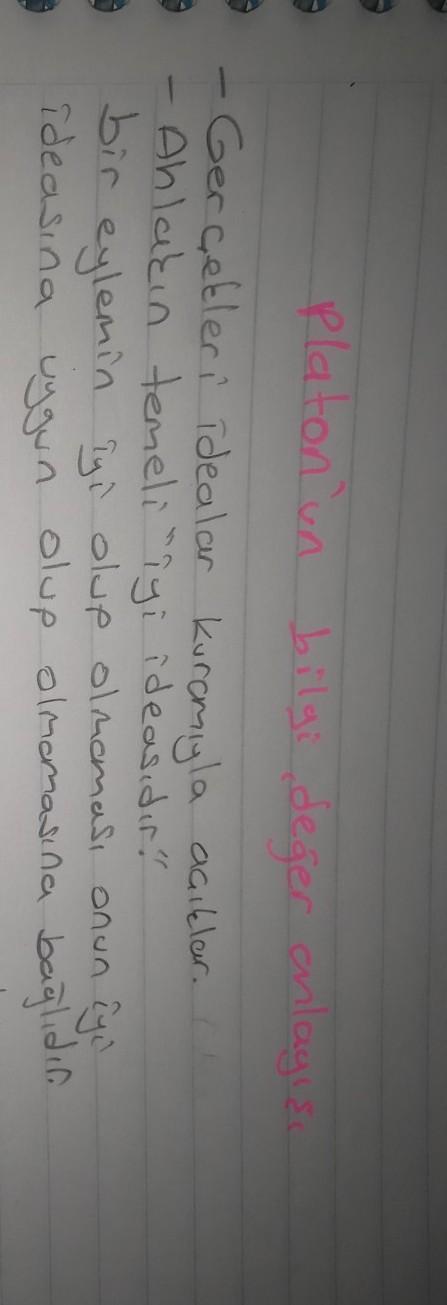 Platon'un bilgi, değer anlayışı
- Gerçekleri idealar kuramıyla açıklar.
- Ahlakın temeli "iyi ideasıdır."
bir eylemin iyi olup olmaması onun iyi
ideasına uygun olup olmamasına bağlıdır.